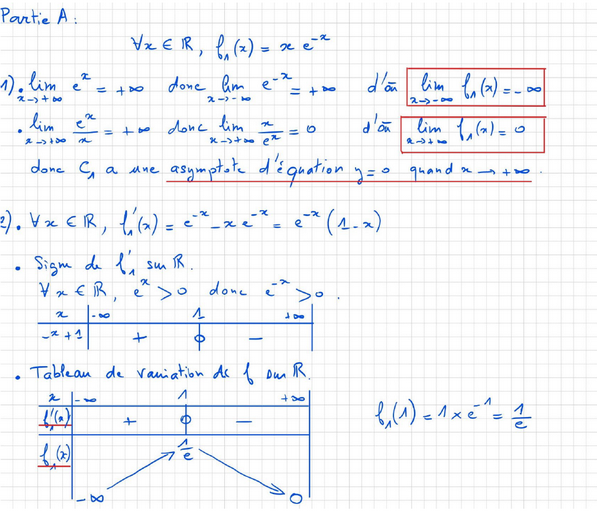 Partie A :
∀x ∈ ℝ, f₁(x) = x e⁻ˣ
1) • lim x→+∞ eˣ = +∞ donc lim x→-∞ e⁻ˣ = +∞ d'où lim x→-∞ f₁(x) = -∞
• lim x→+∞ eˣ/x = +∞ donc lim x→+∞ x/eˣ = 0 d'où lim x→+∞ f₁(x) = 0
donc C₁ a une asymptote d'équation y=0 quand x → +∞.
2) • ∀x ∈ ℝ, f₁'(x) = e⁻ˣ - x e⁻ˣ = e⁻ˣ (1-x)
• Signe de f₁' sur ℝ.
∀x ∈ ℝ, eˣ > 0 donc e⁻ˣ > 0.
x -∞ 1 +∞
-x+1 + 0 -
• Tableau de variation de f sur ℝ.
x -∞ 1 +∞
f₁'(x) + 0 -
f₁(1) = 1 × e⁻¹ = 1/e
f₁(x) -∞ 1/e 0